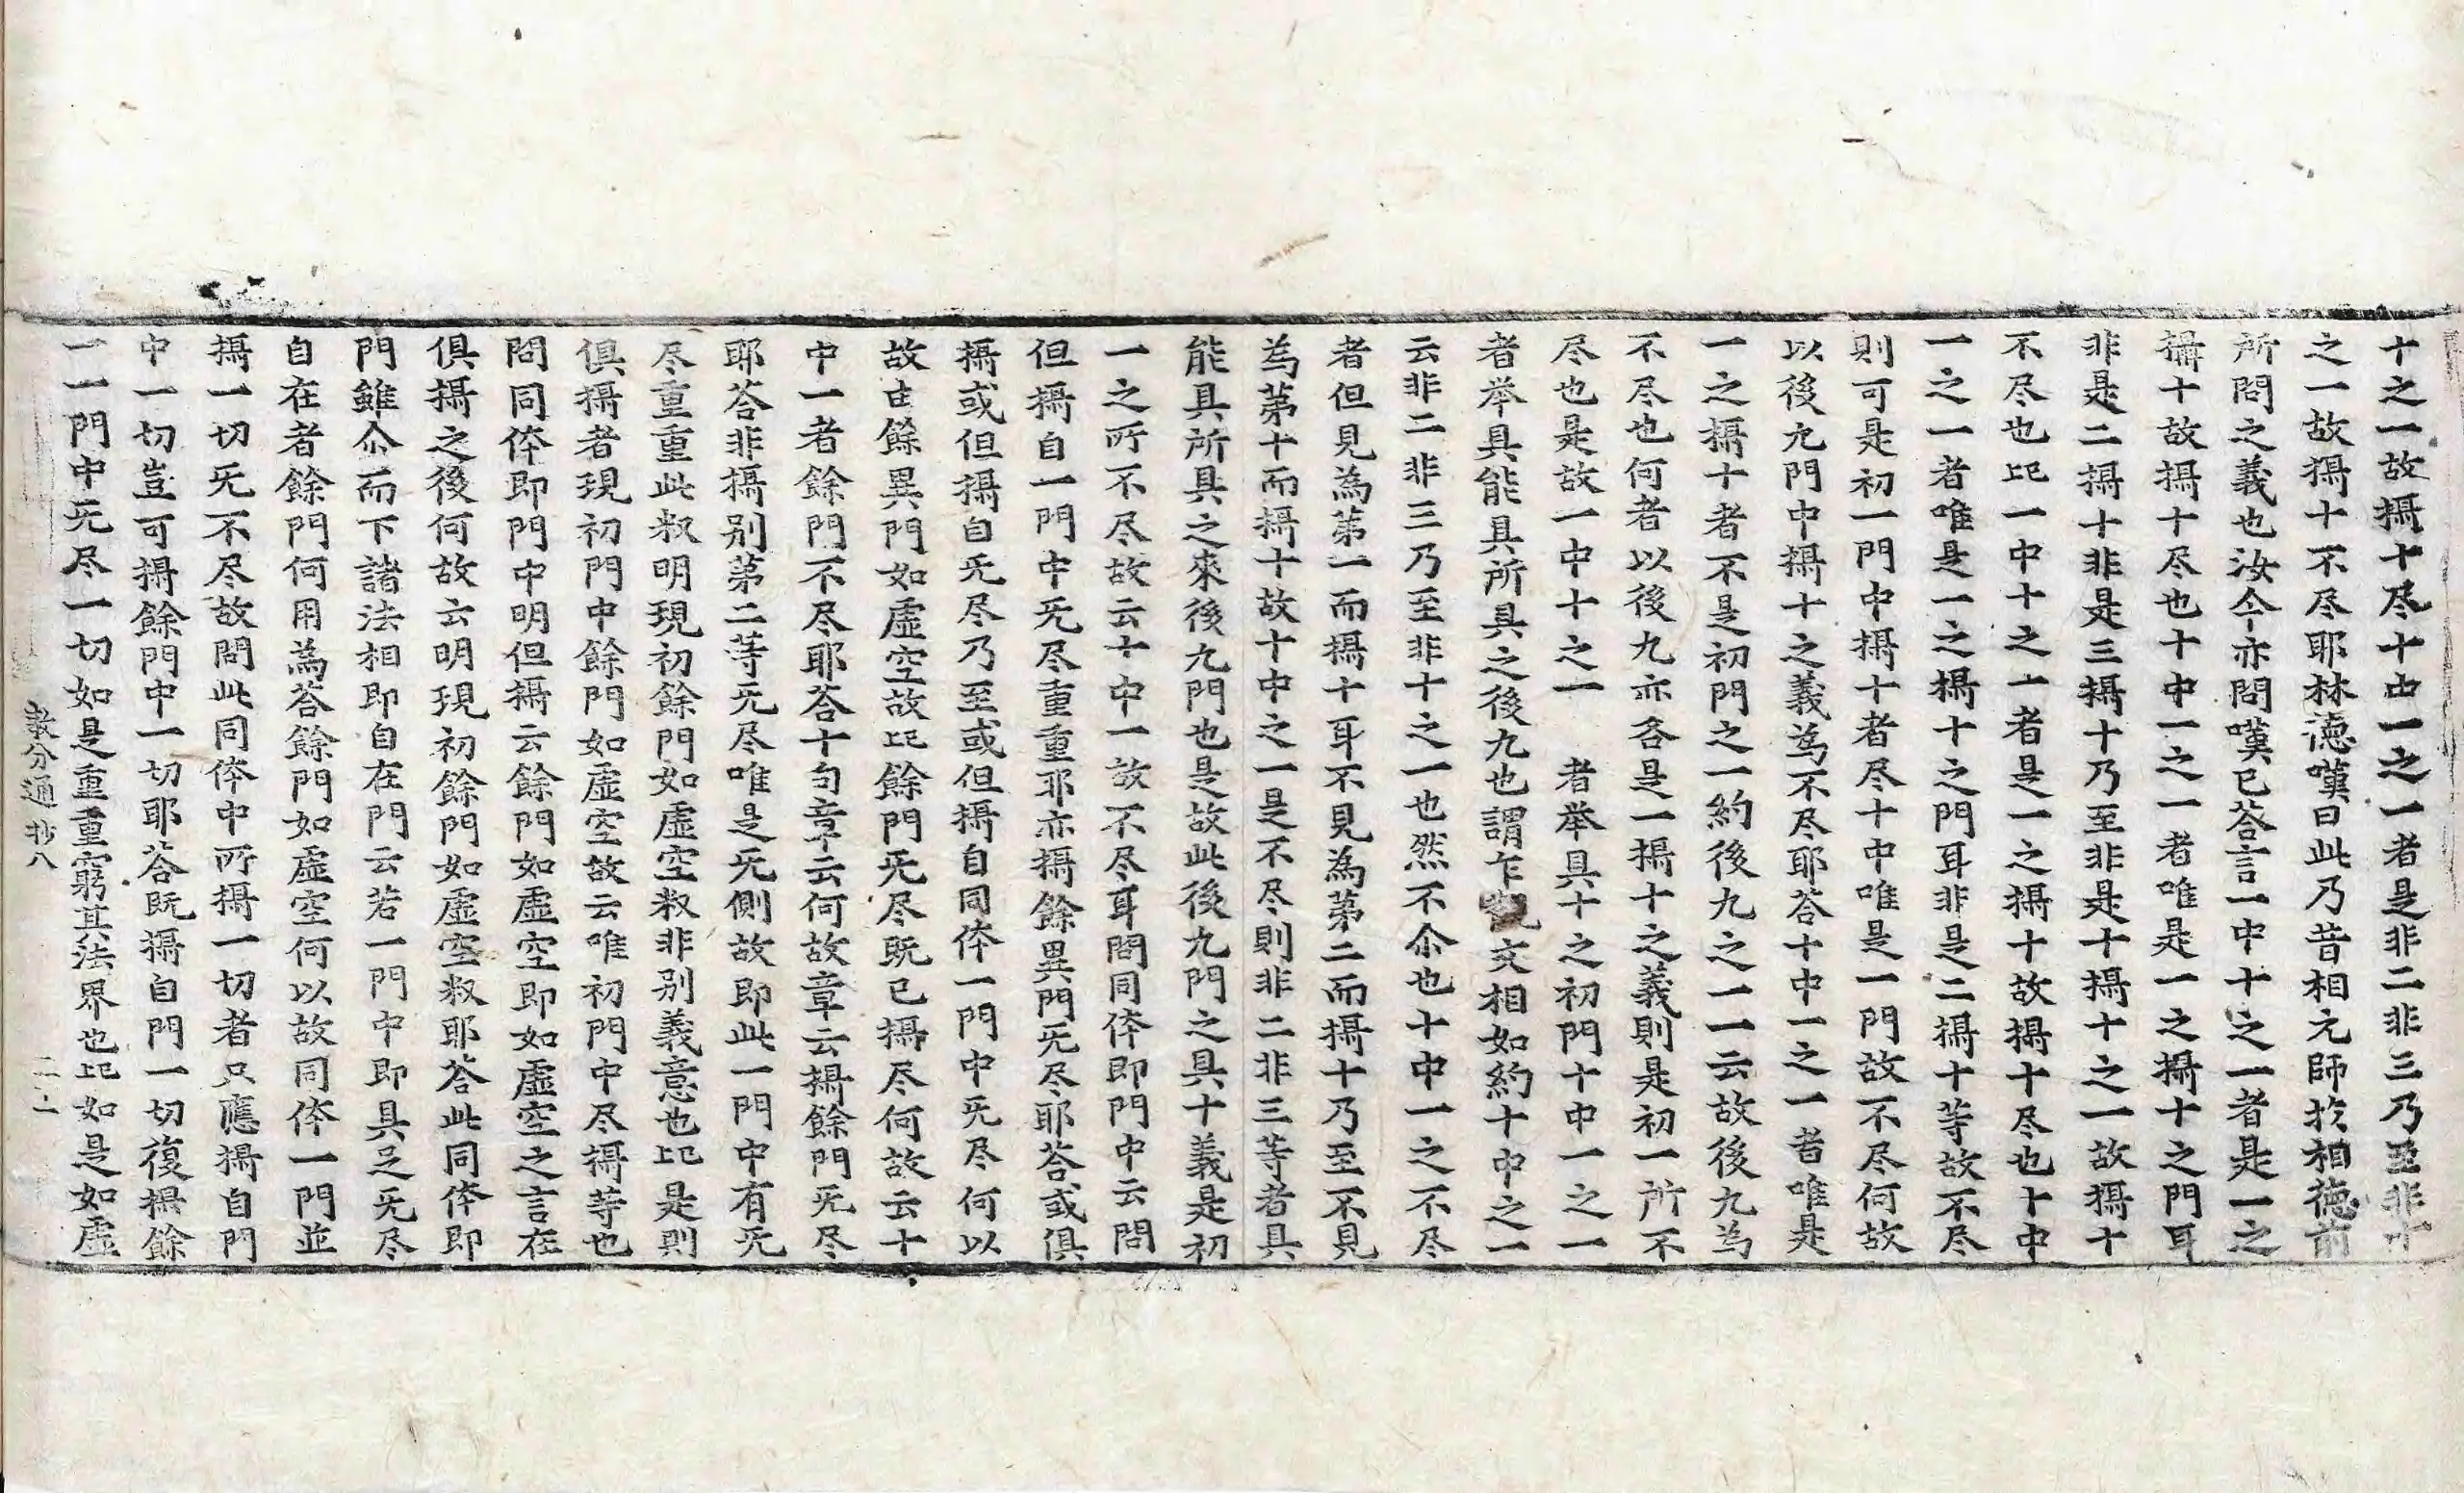 十之一故攝十尽十中一之一者是非二非三乃至非十
之一故攝十不尽耶林德嘆曰此乃昔相元師於相德前
所問之義也汝今亦問嘆已荅言一中十之一者是一之
攝十故攝十尽也十中一之一者唯是一之攝十之門耳
非是二攝十非是三攝十乃至非是十攝十之一故攝十
不尽也記一中十之一者是一之攝十故攝十尽也十中
一之一者唯是一之攝十之門耳非是二攝十等故不尽
則可是初一門中攝十者尽十中唯是一門故不尽何故
以後九門中攝十之義為不尽耶荅十中一之一者唯是
一之攝十者不是初門之一約後九之一一云故後九為
不尽也何者以後九亦各是一攝十之義則是初一所不
尽也是故一中十之一　者举具十之初門十中一之一
者举具能具所具之後九也謂乍觀文相如約十中之一
云非二非三乃至非十之一也然不尒也十中一之不尽
者但見為第一而攝十耳不見為第二而攝十乃至不見
為第十而攝十故十中之一是不尽則非二非三等者具
能具所具之來後九門也是故此後九門之具十義是初
一之所不尽故云十中一故不尽耳問同体即門中云問
但攝自一門中旡尽重重耶亦攝餘異門旡尽耶荅或俱
攝或但攝自旡尽乃至或但攝自同体一門中旡尽何以
故由餘異門如虛空故記餘門旡尽既已攝尽何故云十
中一者餘門不尽耶荅十句章云何故章云攝餘門旡尽
耶荅非攝別第二等旡尽唯是旡側故即此一門中有旡
尽重重此㪅明現初餘門如虛空㪅非別義意也記是則
俱攝者現初門中餘門如虛空故云唯初門中尽攝等也
問同体即門中明但攝云餘門如虛空即如虛空之言在
俱攝之後何故云明現初餘門如虛空㪅耶荅此同体即
門雖尒而下諸法相即自在門云若一門中即具足旡尽
自在者餘門何用為荅餘門如虛空何以故同体一門並
攝一切旡不尽故問此同体中所攝一切者只應攝自門
中一切豈可攝餘門中一切耶荅既攝自門一切復攝餘
一一門中旡尽一切如是重重窮其法界也記如是如虛
教分通抄八